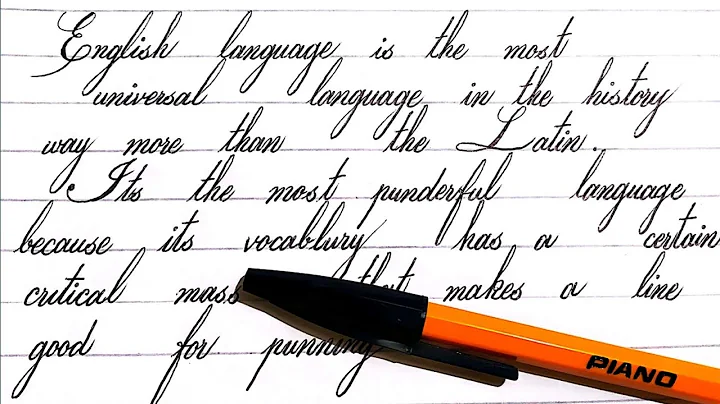 English language is the most
universal language in the history
way more than the Latin.
Its the most punderful language
because its vocablury has a certain
critical mass that makes a line
good for punning
PIANO